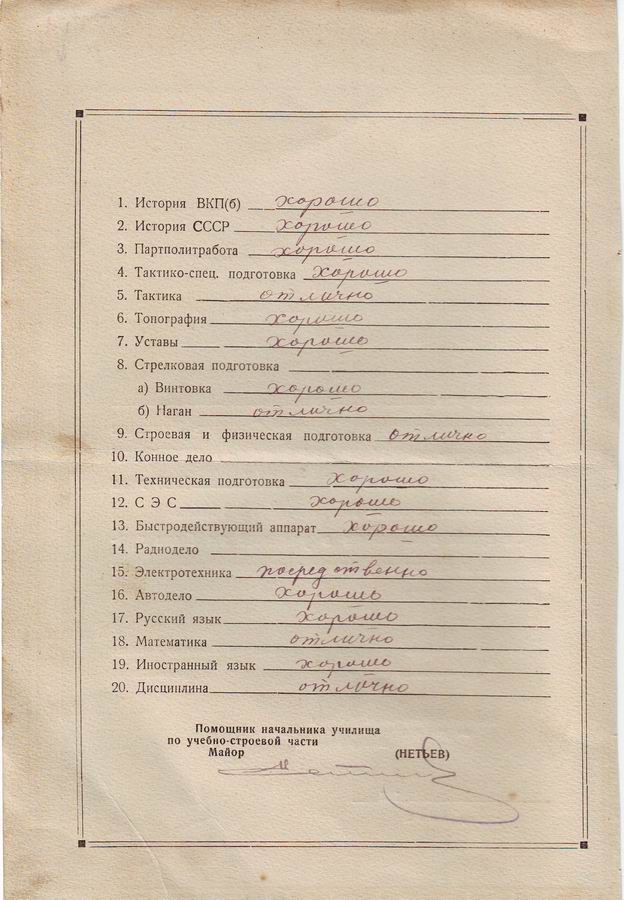 1. История ВКП(б) хорошо
2. История СССР хорошо
3. Партполитработа хорошо
4. Тактико-спец. подготовка хорошо
5. Тактика отлично
6. Топография хорошо
7. Уставы хорошо
8. Стрелковая подготовка
а) Винтовка хорошо
б) Наган отлично
9. Строевая и физическая подготовка отлично
10. Конное дело
11. Техническая подготовка хорошо
12. С Э С хорошо
13. Быстродействующий аппарат хорошо
14. Радиодело
15. Электротехника посредственно
16. Автодело хорошо
17. Русский язык хорошо
18. Математика отлично
19. Иностранный язык хорошо
20. Дисциплина отлично
Помощник начальника училища
по учебно-строевой части
Майор (НЕТЬЕВ)